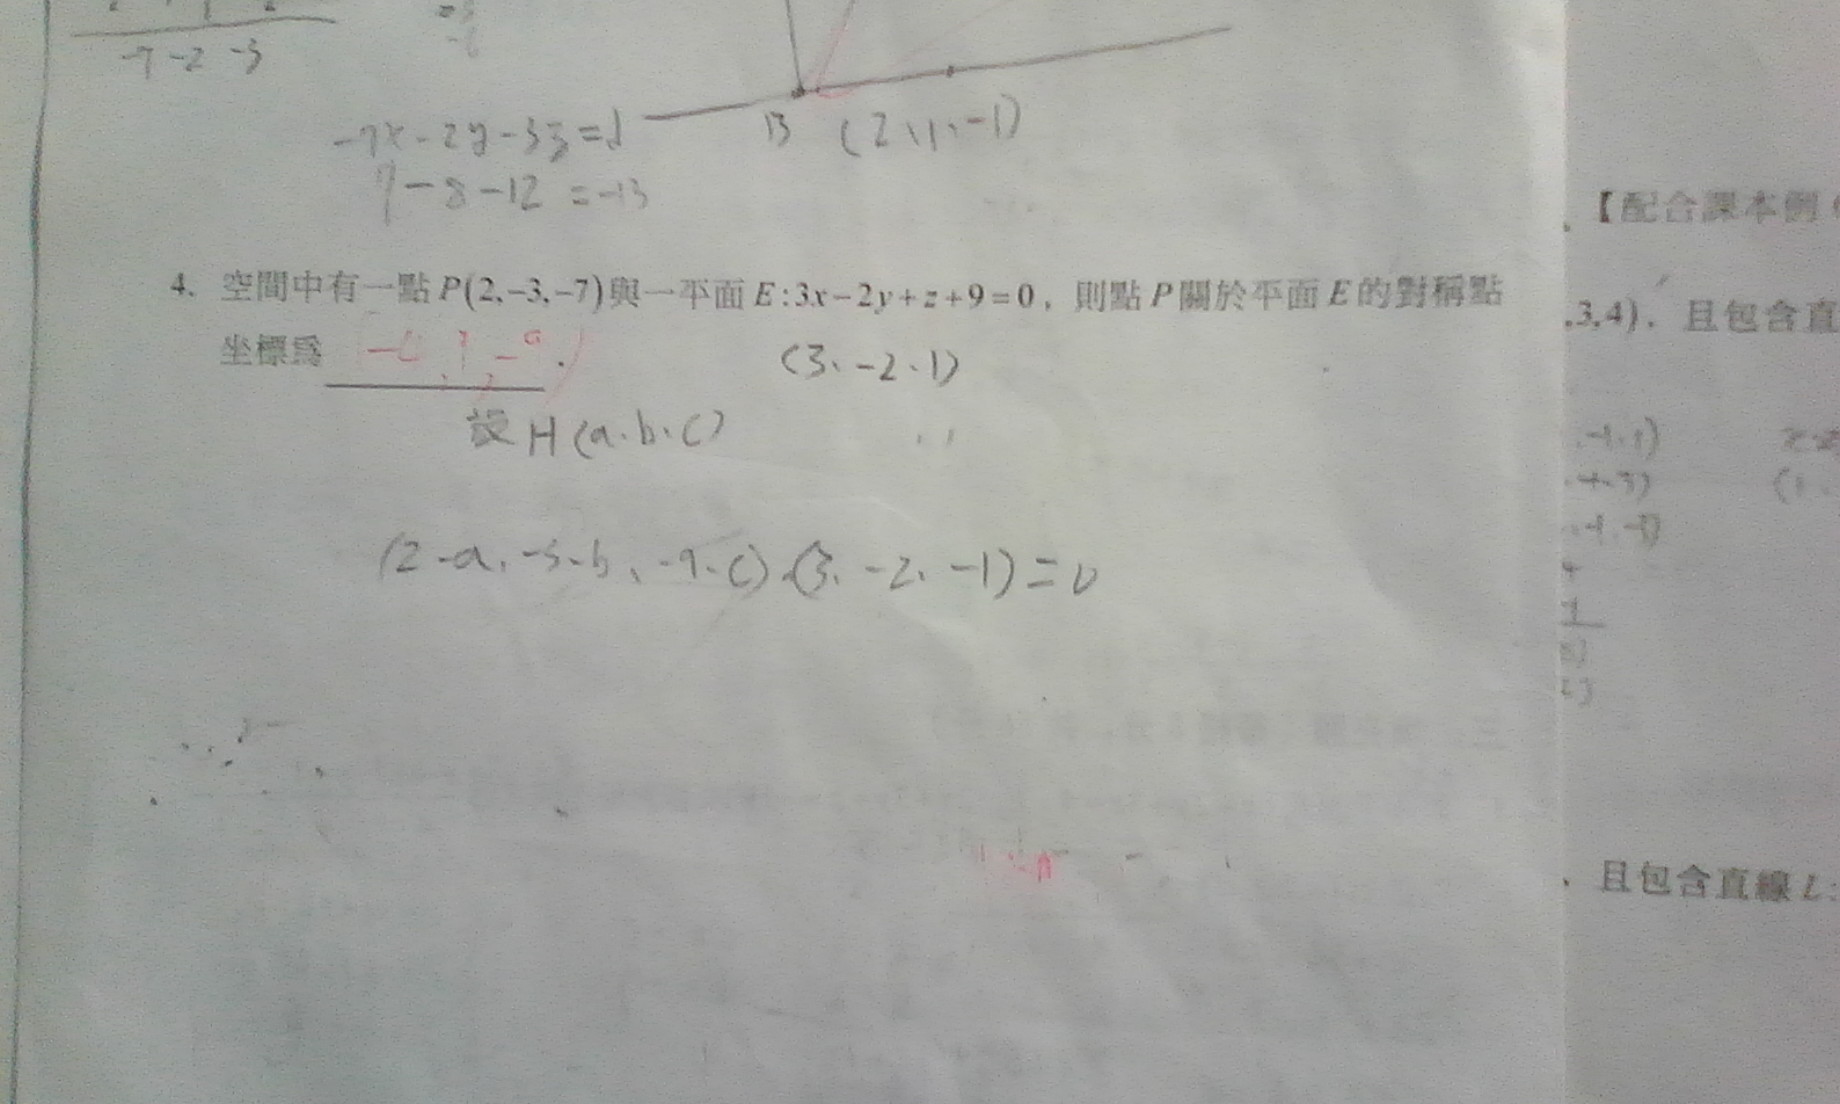 -7 -2 -3
-7x-2y-3z=d
7-8-12=-13
B (2、1、-1)
【配合課本例
4. 空間中有一點P(2,-3,-7)與一平面E:3x-2y+z+9=0，則點P關於平面E的對稱點
坐標為
(3、-2、1)
設H(a、b、c)
(2-a、-3-b、-7-c)·(3、-2、-1)=0
,3,4)，且包含直
、-1、1)
、-1、-1)
，且包含直線L: